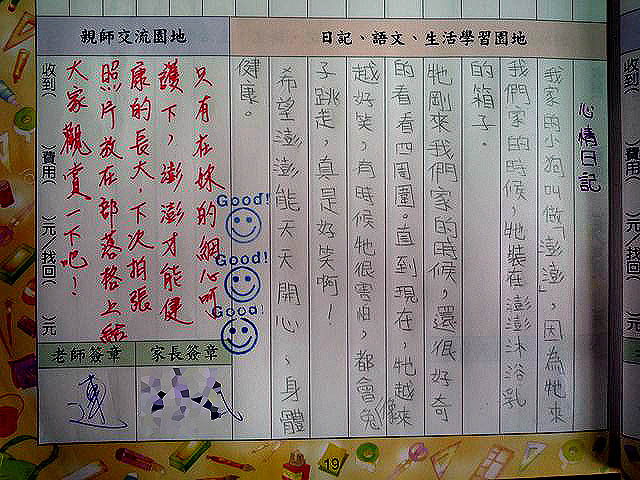 親師交流園地
日記、語文、生活學習園地
心情日記
我家的小狗叫做「澎澎」，因為牠來
我們家的時候，牠裝在澎澎沐浴乳
的箱子。
牠剛來我們家的時候，還很好奇
的看看四周圍。直到現在，牠越來
越好笑，有時候牠很害怕，都會像兔
子跳走，真是好笑啊！
希望澎澎能天天開心、身體
健康。
只有在妹的細心呵
護下，澎澎才能健
康的長大，下次拍張
照片放在部落格上給
大家觀賞一下吧！
Good!
Good!
Good!
收到（ ）費用（ ）元/找回（ ）元
老師簽章
家長簽章
連
19